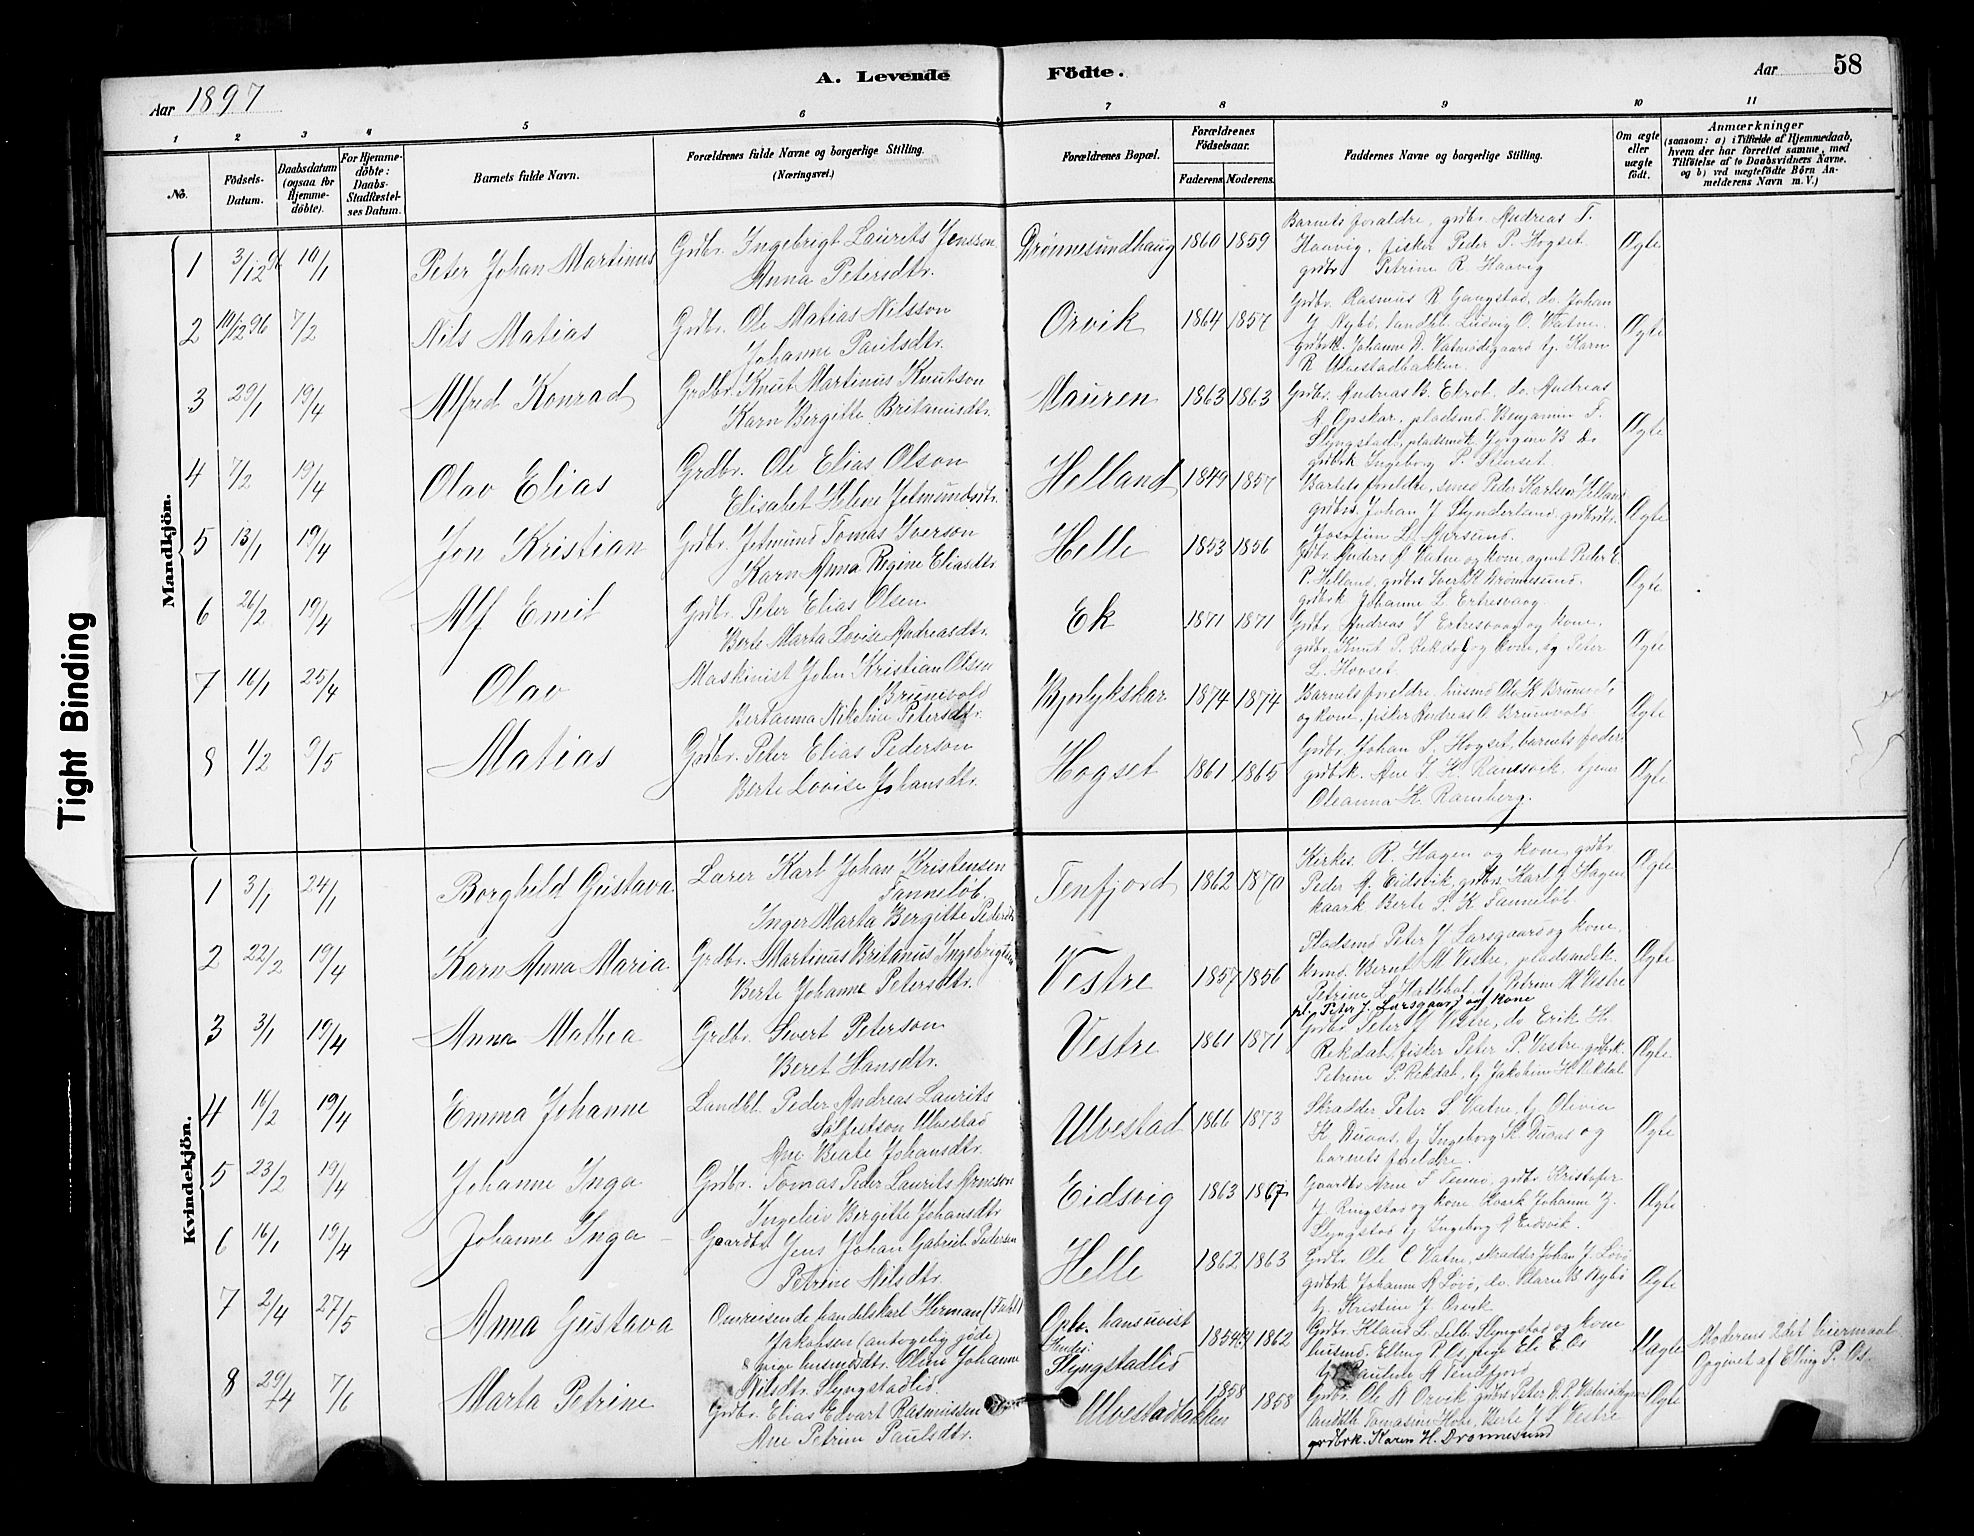 A. Levende Födte.
Aar 1897
Aar 58
1 2 3 4 5 6 7 8 9 10 11
No.
Födsels-Datum.
Daabsdatum (ogsaa for Hjemmedöbte).
For Hjemmedöbte: Daabs-Stadfæstelses Datum.
Barnets fulde Navn.
Forældrenes fulde Navne og borgerlige Stilling.
(Næringsvei.)
Forældrenes Bopæl.
Forældrenes Födselsaar.
Faderens. Moderens.
Faddernes Navne og borgerlige Stilling.
Om ægte eller uægte födt.
Anmærkninger
(saasom: a) i Tilfælde af Hjemmedaab, hvem der har forrettet samme, med Tilföielse af to Daabsvidners Navne, og b) ved uægtefödte Börn Anmelderens Navn m. V.)
Tight Binding
Mandkjön.
1 3/12 96 10/1 Peter Johan Martinus Grdbr. Ingebrigt Laurits Jensson Drönnesundhaug 1860 1859 Barnets foraldre, grdbr. Andreas T. Ægte
Anna Petersdtr. Haavig, fisker Peder P. Hogset
grdbr Petrine R. Haavig
2 10/12 96 7/2 Nils Matias Grdbr. Ole Matias Nilsson Orvik 1864 1857 Grdbr. Rasmus R Gangstad, do. Johan Ægte
Johanne Paulsdtr. J. Nybö, landhl. Ludvig O. Vatne
Johanne R. Vatnödegaard tj. Karn
R Ulvestadbakken
3 29/1 19/4 Alfred Konrad Grdbr. Knut Martinus Knutson Mauren 1863 1863 Grdbr. Andreas B. do. Andreas Ægte
Karn Bergitte Britanusdtr. A Opskar, pladsmd. Benjamin T.
Slyngstad, pladsmdk Jörgine B do
grdbrk Ingeborg P.
4 7/2 19/4 Olav Elias Grdbr. Ole Elias Olson Helland 1849 1857 foreldre, Peder Karlsen Helland Ægte
Elisabet Helene Jetmundsdtr. grdbr. Johan J
Josefine L.
5 13/1 19/4 Jon Kristian Grdbr. Jetmund Tomas Iverson Helle 1853 1856 Grdbr. Anders A Vatne og kone, agent Peder E. Ægte
Karn Anna Regine Eliasdtr. P. Helland, grdbr. Drönnesund,
grdbrk Johanne L. Ertresvaag
6 26/2 19/4 Alf Emil Grdbr. Peter Elias Olsen Ek 1871 1871 Grdbr. Andreas Ertresvaag og kone, Ægte
Berte Marta Lovise Andreasdtr. grdbr. Knut P. Rekdal og kone, tj Peter
L. Hovset
7 16/1 25/4 Olav Maskinist John Kristian Olsen Bjorlykskar 1874 1874 Barnets foreldre, husmd Ole K Brunvol, Ægte
Brunvold og kone, fisker Andreas O Brunvold
Bertanna Nikeline Petersdtr.
8 1/2 9/5 Matias Grdbr. Peter Elias Pederson Hogset 1861 1865 Grdbr. Johan P. Hogset, barnets fader, Ægte
Berte Lovise Johansdtr. grdbrk. Ane
Oleanna K. Ramberg.
Kvindekjön.
1 3/1 24/1 Borghild Gustava Larer Karl Johan Kristensen Tenfjord 1862 1870 Kirkes. R. Hagen og kone, grdbr Ægte
Fannelöb Peder A. Eidsvik, grdbr. Karl J Hagen
Inger Marta Bergitte Pedersdtr kaark Berte S. K Fannelöb
2 22/2 19/4 Karn Anna Maria Grdbr. Martinus Britanus Ingebrigtsen Vestre 1857 1856 Pladsmd Peter J Larsgaard og kone, Ægte
Berte Johanne Petersdtr. Bernt M Vestre, pladsmdk.
Petrine L. Hatlhol, tj Petrine M Vestre
3 3/1 19/4 Anna Mathea Grdbr. Sivert Peterson Vestre 1861 1871 pl. Peter J. Larsgaard og kone Ægte
Beret Hansdtr. Grdbr Peter J Vestre, do Erik H.
Rekdal, fisker Peter P. Vestre grdbrk.
Petrine P. Rekdal, tj Jakobine H Rekdal
4 10/2 19/4 Emma Johanne Landhl. Peder Andreas Laurits Ulvestad 1866 1873 Skradder Peter S. Vatne, tj Olivia Ægte
Solfestson Ulvestad K. tj Ingeborg K og
Ane Beate Johansdtr. barnets foreldre.
5 23/2 19/4 Johanne Inga Grdbr. Tomas Peder Laurits Arneson Eidsvig 1863 1867 Gaardbr Arne F. grdbr Kristofer Ægte
Ingeleiv Bergitte Johansdtr J. Ringstad og kone kaark Johanne J.
Slyngstad tj Ingeborg A Eidsvik.
6 16/1 19/4 Johanne Inga Gaardbr. Jens Johan Gabriel Petersen Helle 1862 1863 Grdbr Ole C Vatne, skradder Johan J. Lövö Ægte
Petrine Nilsdtr. grdbrk Johanne A Lövö, do. Marie B Nybö
tj. Kristine J Orvik
7 2/4 27/5 Anna Gustava Omreisende handelskarl Herman (Fabl) Oph. hans uvist 1854/5 1862 Grdbr. Klaus L. Lille Slyngstad og kone Uægte Moderens 2det leiermaal
Jakobsen (antagelig jöde) hendes: husmd. Elling P. Os, pige Eli E Os Opgivet af Elling P. Os.
& pige husmdsdtr. Oline Johanne Slyngstadlid tj Pauline A Tenfjord
Nilsdtr. Slyngstadlid.
8 29/4 7/6 Marta Petrine Grdbr. Elias Edvart Rasmussen Ulvestadbakken 1858 1858 Grdbr. Ole A Orvik, grdbr Peter A. P. Vatnödegaard Ægte
Ane Petrine Paulsdtr. Tomasine Hove, Berte J S Vestre
grdbrk. Karen H. Drönnesund